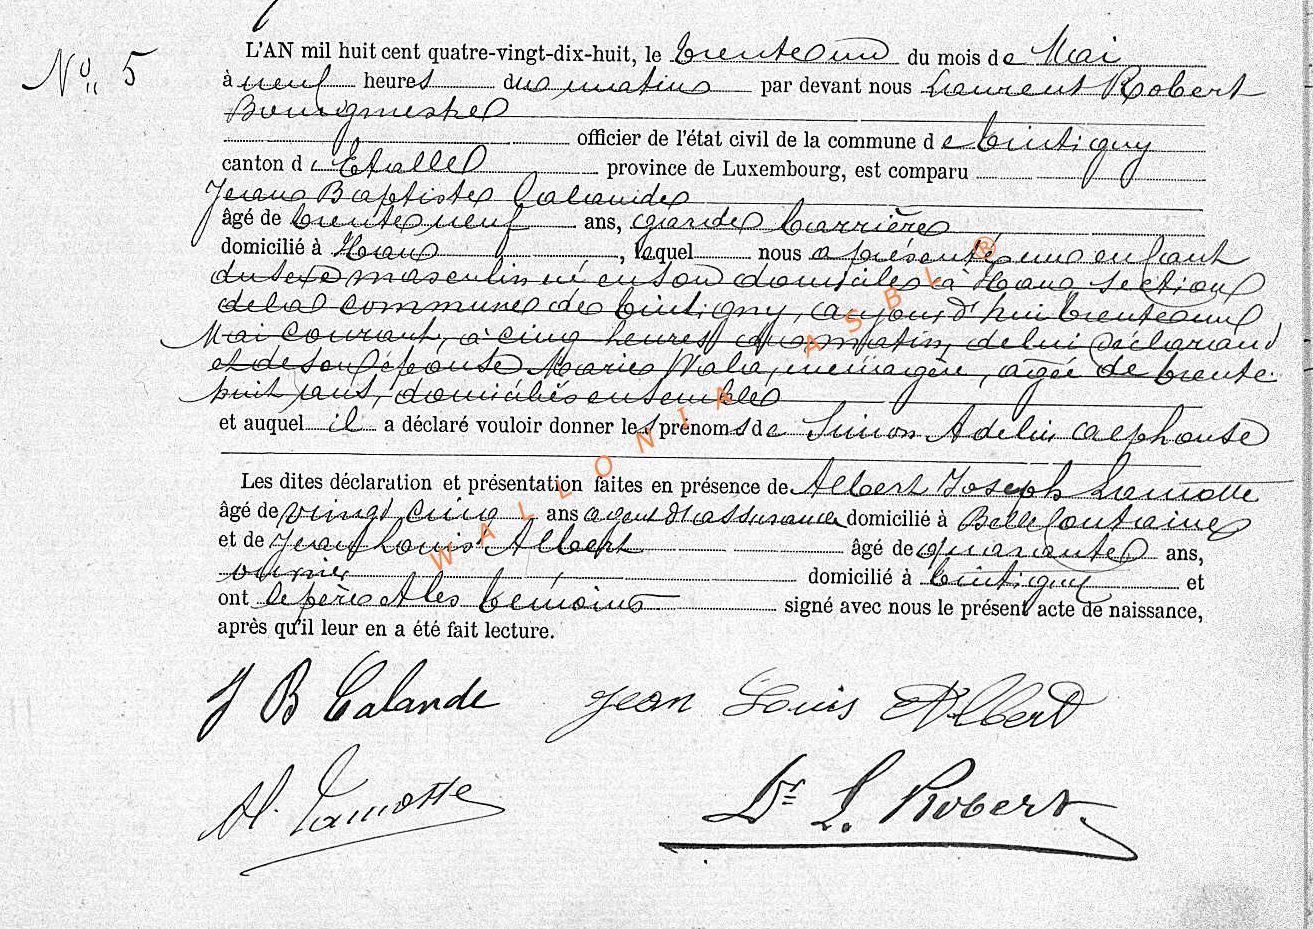 Nº 5
L'AN mil huit cent quatre-vingt-dix-huit, le trente un du mois de Mai
à neuf heures du matin par devant nous Laurent Robert
Bourgmestre
officier de l'état civil de la commune de Tintigny
canton d'Etalle province de Luxembourg, est comparu
Jean Baptiste Calande
âgé de trente neuf ans, garde barrière
domicilié à Han, lequel nous a présenté un enfant
du sexe masculin né en son domicile à Han section
de la commune de Tintigny, aujourd'hui trente un
Mai courant, à cinq heures du matin, de lui déclarant
et de son épouse Marie ménagère, âgée de trente
huit ans, domiciliés ensemble
et auquel il a déclaré vouloir donner les prénoms de Simon Adelin Alphonse
Les dites déclaration et présentation faites en présence de Albert Joseph Lamotte
âgé de vingt cinq ans agent d'assurance domicilié à Bellefontaine
et de Jean Louis Albert âgé de quarante ans,
domicilié à Tintigny et
ont le père et les témoins signé avec nous le présent acte de naissance,
après qu'il leur en a été fait lecture.
J B Calande Jean Louis Albert
Al. Lamotte Dr L. Robert
WALLONIA ASBL ®